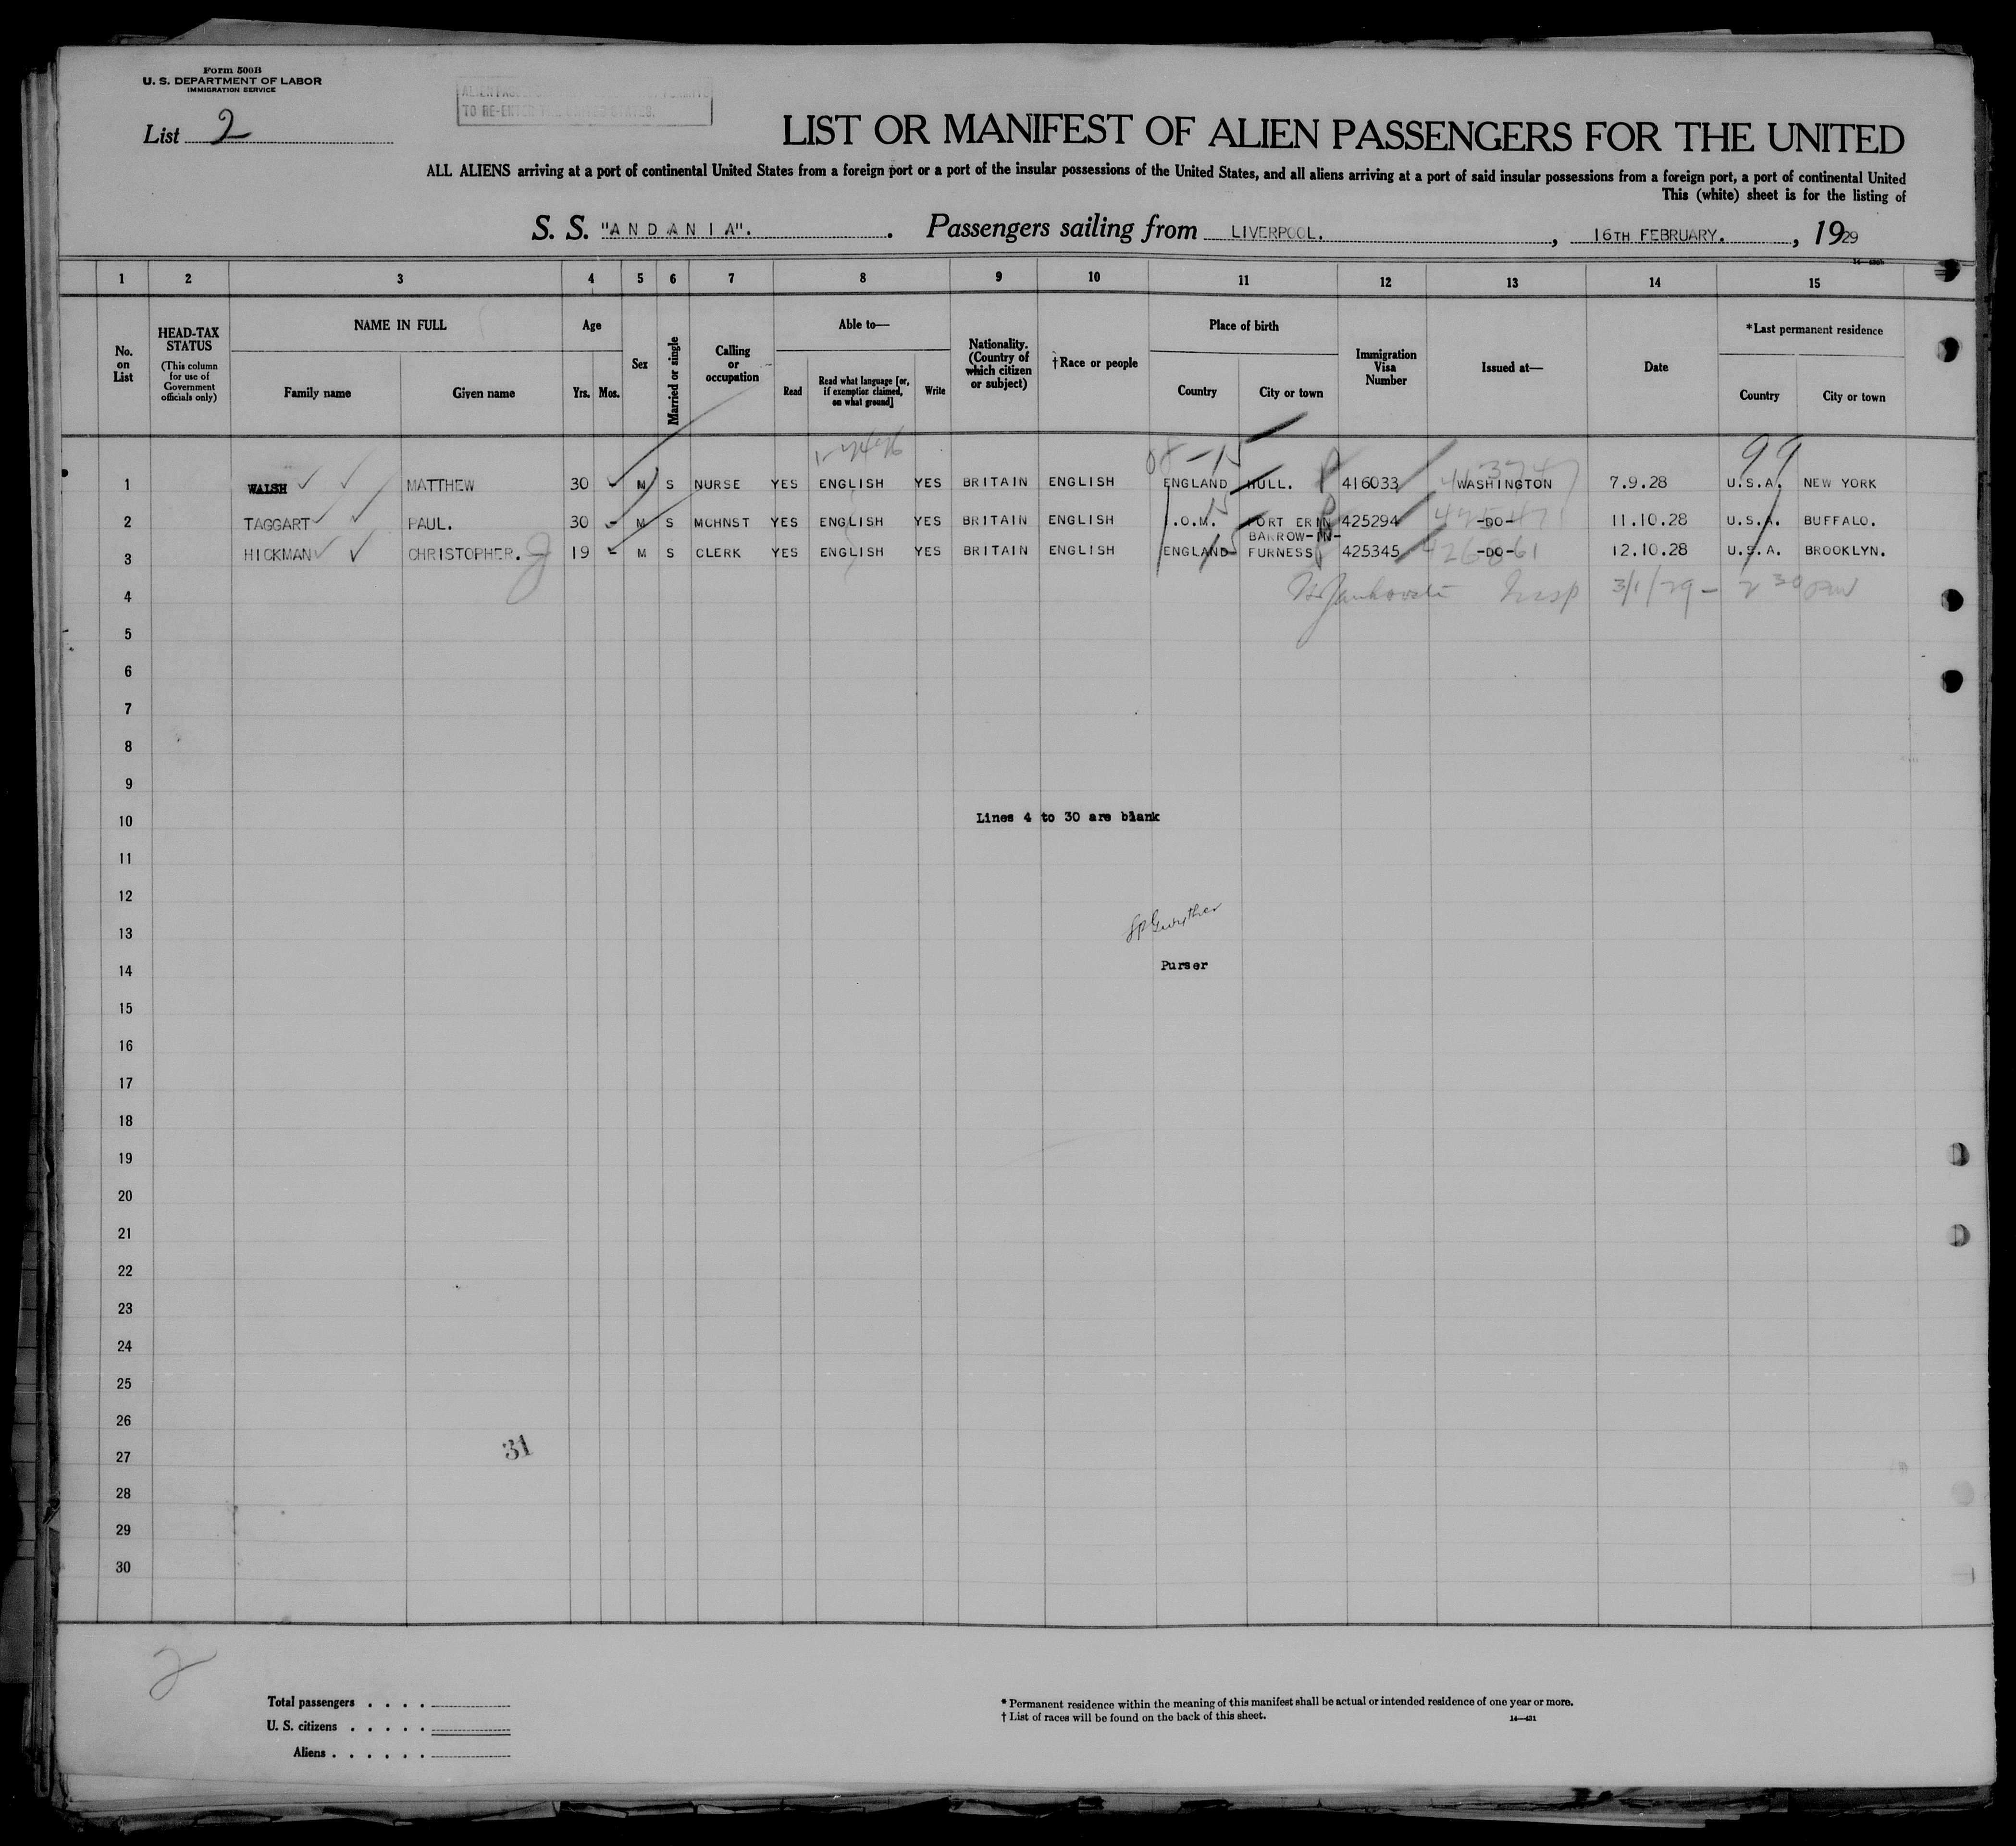 Form 500B
U. S. DEPARTMENT OF LABOR
IMMIGRATION SERVICE
TO RE-ENTER THE UNITED STATES.
List 2
LIST OR MANIFEST OF ALIEN PASSENGERS FOR THE UNITED
ALL ALIENS arriving at a port of continental United States from a foreign port or a port of the insular possessions of the United States, and all aliens arriving at a port of said insular possessions from a foreign port, a port of continental United
This (white) sheet is for the listing of
S. S. "ANDANIA". Passengers sailing from LIVERPOOL. , 16TH FEBRUARY. , 1929
1 2 3 4 5 6 7 8 9 10 11 12 13 14 15
No. on List
HEAD-TAX STATUS
(This column for use of Government officials only)
NAME IN FULL
Family name Given name
Age
Yrs. Mos.
Sex
Married or single
Calling or occupation
Able to—
Read
Read what language [or, if exemption claimed, on what ground]
Write
Nationality. (Country of which citizen or subject)
†Race or people
Place of birth
Country City or town
Immigration Visa Number
Issued at—
Date
*Last permanent residence
Country City or town
99
1 WALSH MATTHEW 30 - M S NURSE YES ENGLISH YES BRITAIN ENGLISH ENGLAND HULL. 416033 WASHINGTON 7.9.28 U.S.A. NEW YORK
2 TAGGART PAUL. 30 - M S MCHNST YES ENGLISH YES BRITAIN ENGLISH I.O.M. PORT ERIN 425294 -DO- 11.10.28 U.S.A. BUFFALO.
3 HICKMAN CHRISTOPHER. 19 - M S CLERK YES ENGLISH YES BRITAIN ENGLISH ENGLAND BARROW-IN-FURNESS 425345 -DO- 12.10.28 U.S.A. BROOKLYN.
4 Insp 3/1/29 - 2 30 PM
5
6
7
8
9
10 Lines 4 to 30 are blank
11
12
13
14 Purser
15
16
17
18
19
20
21
22
23
24
25
26
31
27
28
29
30
2
Total passengers . . . .
U. S. citizens . . . . .
Aliens . . . . . .
* Permanent residence within the meaning of this manifest shall be actual or intended residence of one year or more.
† List of races will be found on the back of this sheet.
14—431